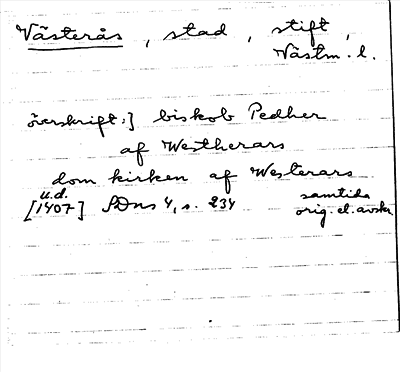 Västerås, stad, stift,
Västm. l.
överskrift:] biskob Pedher
af Westherars
dom kirken af Westerars
u.d.
[1407] SDns 4, s. 234 samtida
orig. el. avskr.